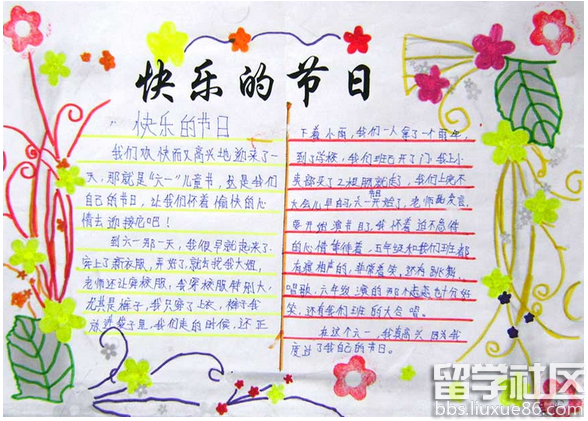 快乐的节日
快乐的节日
我们欢快而又高兴地迎来了一
天，那就是“六一”儿童节，这是我们
自己的节日，让我们怀着愉快的心
情去迎接它吧！
到六一那一天，我很早就起来了
穿上了新衣服，开始了，就去找我大姐，
老师还让穿校服，我穿校服特别大，
尤其是裤子，我只穿了上衣，裤子我
放进袋子里，我们走的时候，还正
下着小雨，我们一人拿了一个雨伞，
到了学校，我们班已开了门，我上小
卖部买了2根 就走了，我们上完不
大会儿早自习六一开始了，老师画
要开始演节目了，我怀着迫不急待
的心情等待着，五年级和我们班都
有 相声的，非常有笑，还有 跳舞，
唱歌，六年级演的那小 也十分好
笑，还有我们班的大合唱。
在这个六一，我真高兴，因为我
度过了我自己的节日。
留学社区
bbs.liuxue86.com